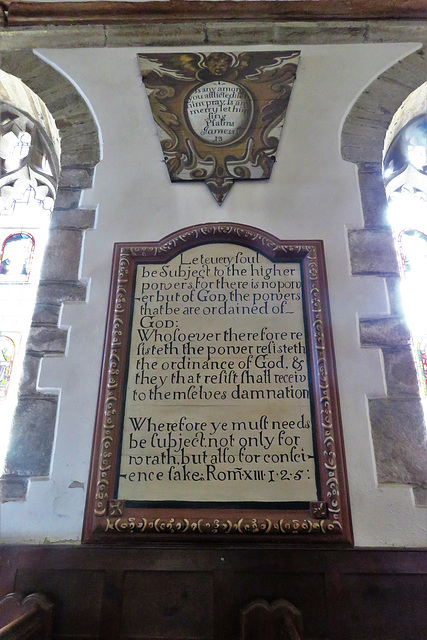 Is any among
you afflicted let
him pray. Is any
merry let him
sing
Psalms
Iames
13
Let euery ſoul
be Subject to the higher
powers, for there is no pow
er but of God, the powers
that be are ordained of
God:
Whoſoever therefore re
ſiſteth the power reſiſteth
the ordinance of God, &
they that reſiſt ſhall receiv
to themſelves damnation
Wherefore ye muſt needs
be ſubject, not only for
wrath, but alſo for conſci-
ence ſake. Rom̃ XIII·1·2·5: